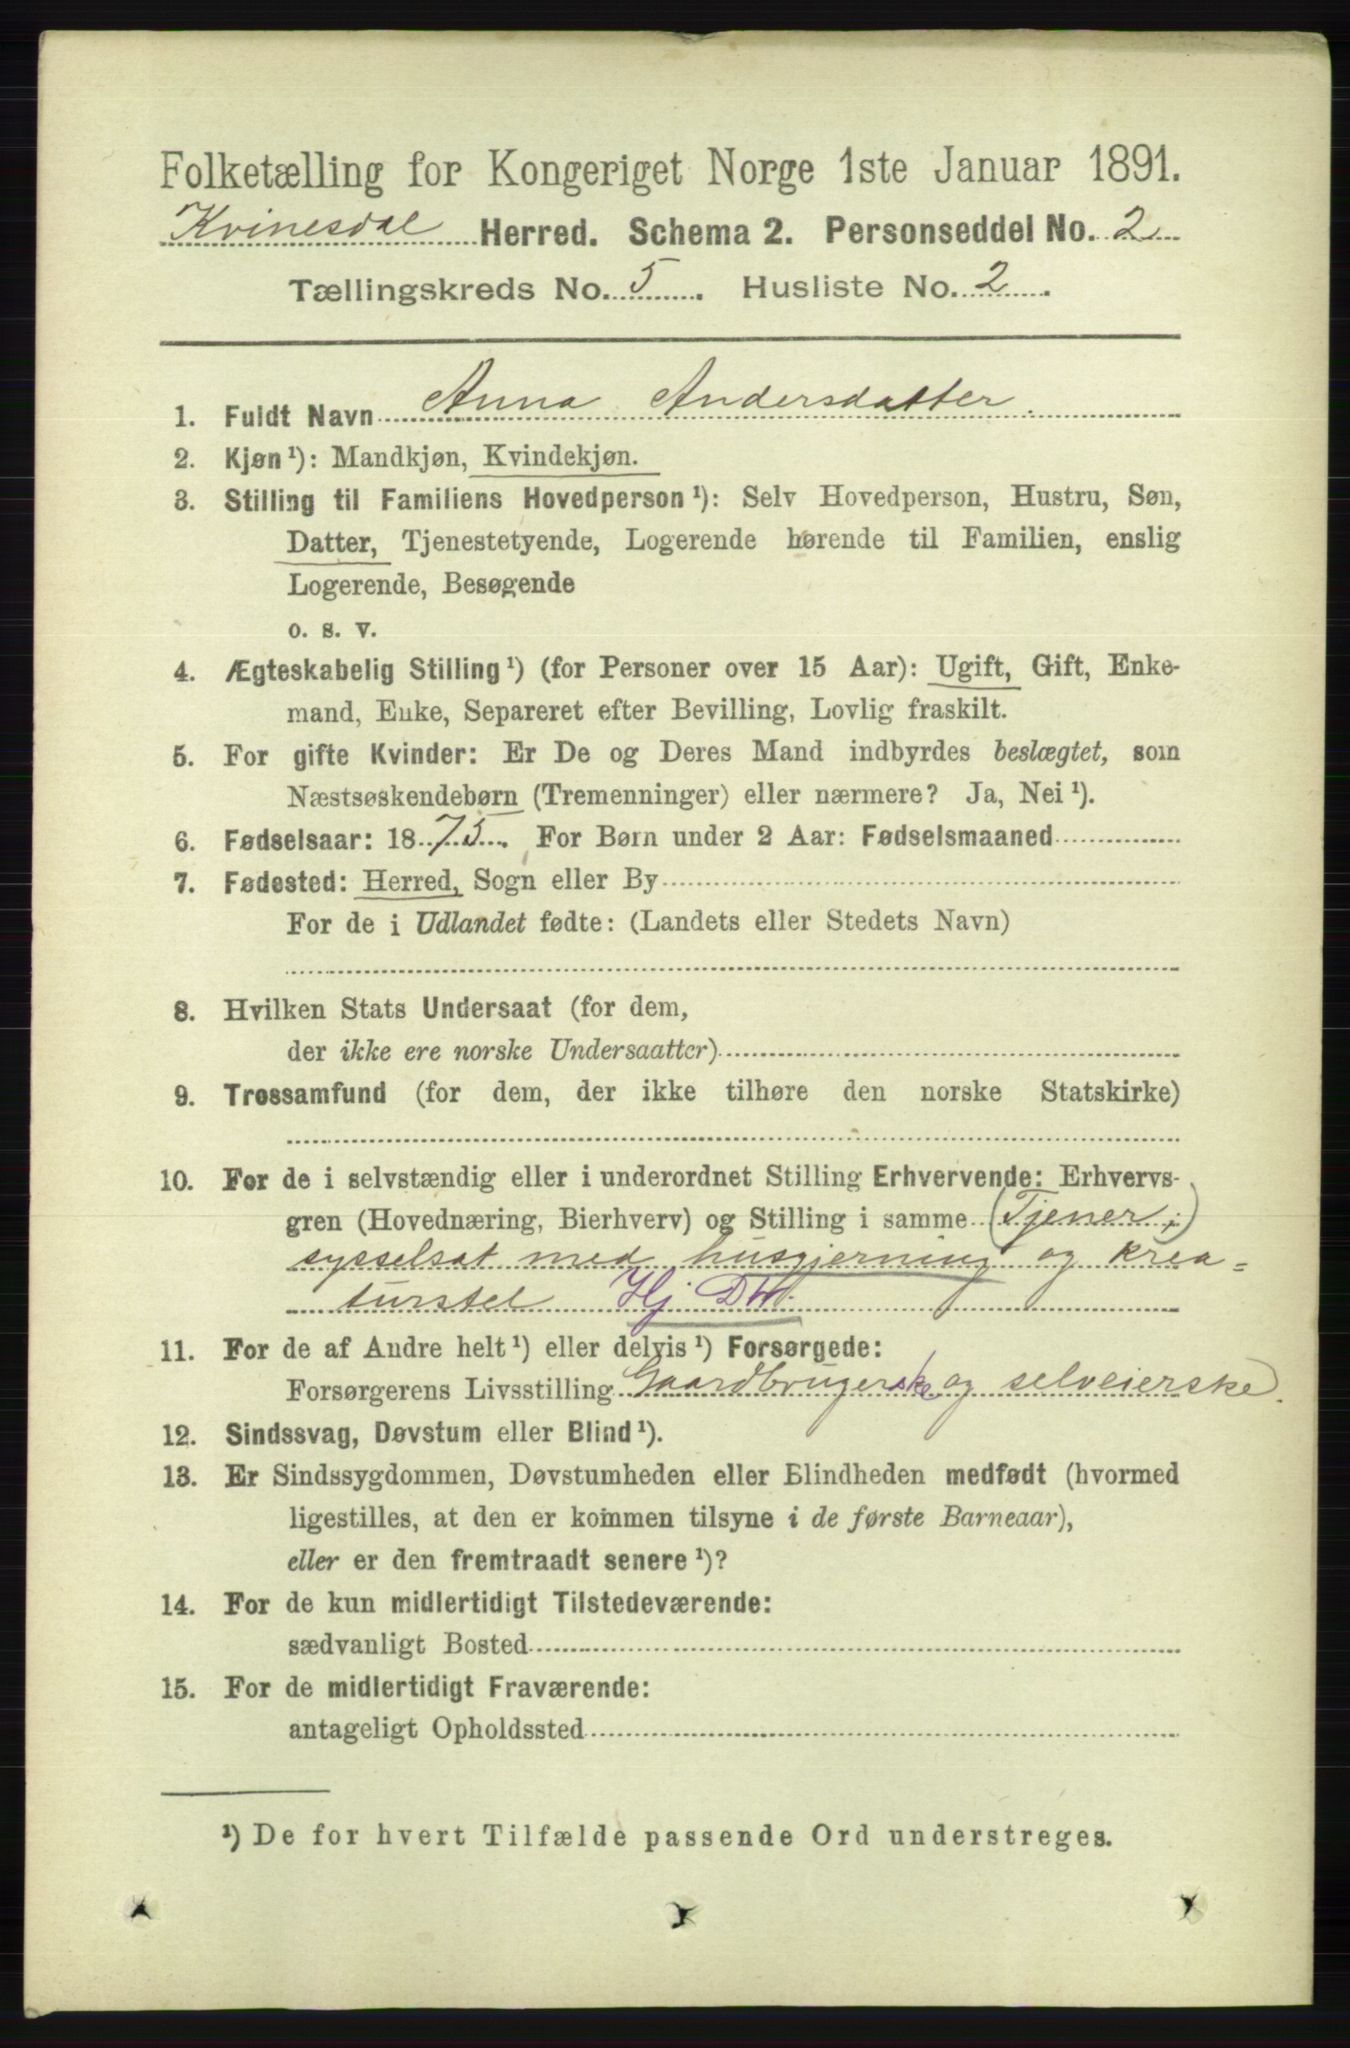 Folketælling for Kongeriget Norge 1ste Januar 1891.
Kvinesdal Herred. Schema 2. Personseddel No. 2
Tællingskreds No. 5. Husliste No. 2.
1. Fuldt Navn Anna Andersdatter.
2. Kjøn¹): Mandkjøn, Kvindekjøn.
3. Stilling til Familiens Hovedperson¹): Selv Hovedperson, Hustru, Søn,
Datter, Tjenestetyende, Logerende hørende til Familien, enslig
Logerende, Besøgende
o. s. v.
4. Ægteskabelig Stilling¹) (for Personer over 15 Aar): Ugift, Gift, Enke-
mand, Enke, Separeret efter Bevilling, Lovlig fraskilt.
5. For gifte Kvinder: Er De og Deres Mand indbyrdes beslægtet, som
Næstsøskendebørn (Tremenninger) eller nærmere? Ja, Nei¹).
6. Fødselsaar: 1875. For Børn under 2 Aar: Fødselsmaaned
7. Fødested: Herred, Sogn eller By
For de i Udlandet fødte: (Landets eller Stedets Navn)
8. Hvilken Stats Undersaat (for dem,
der ikke ere norske Undersaatter)
9. Trossamfund (for dem, der ikke tilhøre den norske Statskirke)
10. For de i selvstændig eller i underordnet Stilling Erhvervende: Erhvervs-
gren (Hovednæring, Bierhverv) og Stilling i samme (Tjener;)
sysselsat med husgjerning og krea=
turstel Hj Dtr.
11. For de af Andre helt¹) eller delvis¹) Forsørgede:
Forsørgerens Livsstilling Gaardbrugerske og selveierske.
12. Sindssvag, Døvstum eller Blind¹).
13. Er Sindssygdommen, Døvstumheden eller Blindheden medfødt (hvormed
ligestilles, at den er kommen tilsyne i de første Barneaar),
eller er den fremtraadt senere¹)?
14. For de kun midlertidigt Tilstedeværende:
sædvanligt Bosted
15. For de midlertidigt Fraværende:
antageligt Opholdssted
¹) De for hvert Tilfælde passende Ord understreges.